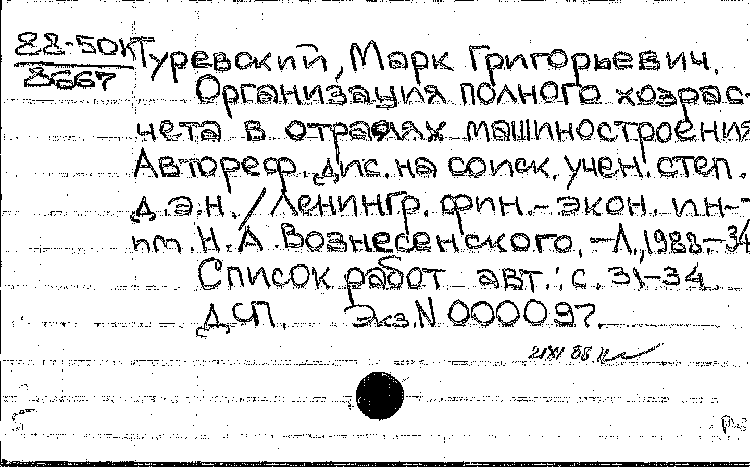 88-50КТ
8667
Гуревский, Марк Григорьевич.
Организация полного хозрас-
чета в отраслях машиностроения
Автореф. дис. на соиск. учен. степ.
д.э.н. / Ленингр. фин.-экон. ин-т
им. Н.А. Вознесенского. - Л., 1988. - 34
Список работ авт.: с. 31-34
ДСП. Экз. N 000097.